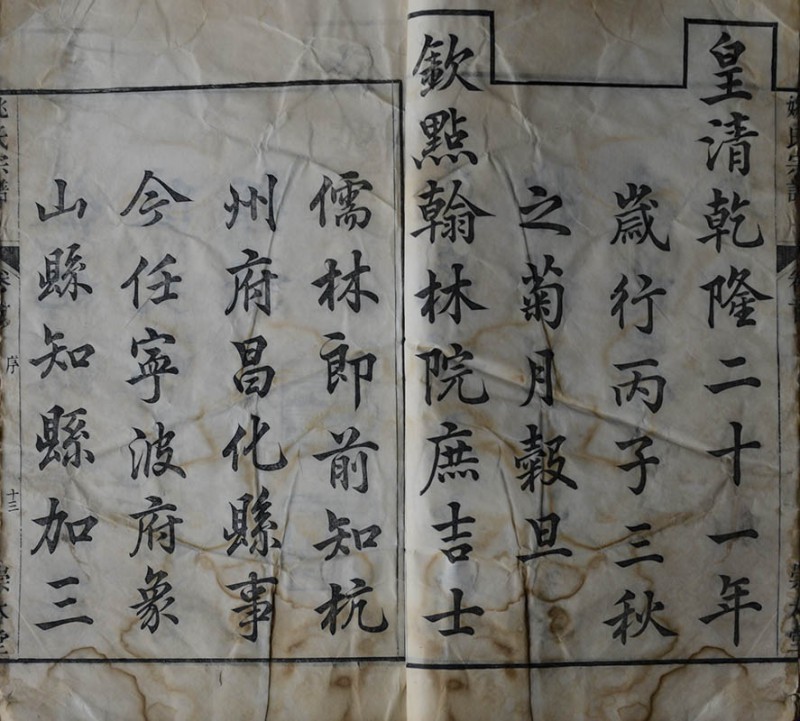 皇清乾隆二十一年
歲行丙子三秋
之菊月穀旦
欽點翰林院庶吉士
儒林郎前知杭
州府昌化縣事
今任寧波府象
山縣知縣加三
姚氏宗譜
序
十三